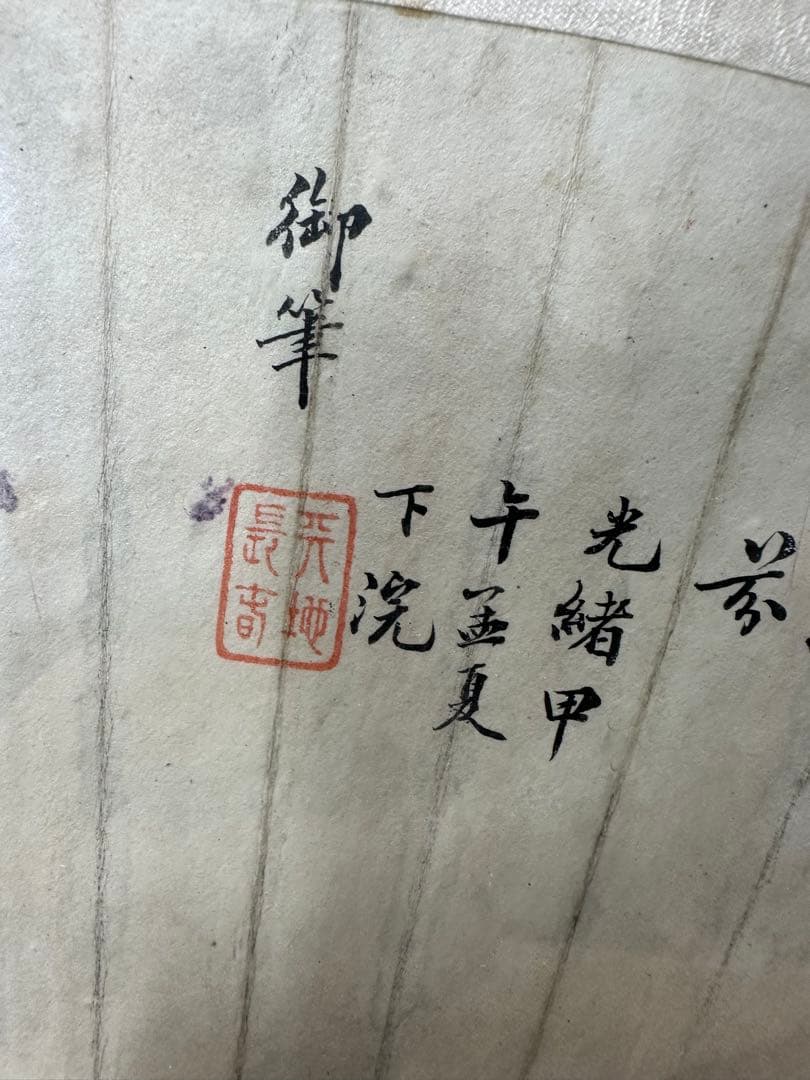 芬
光緒甲
午孟夏
下浣
御筆
天地
長春